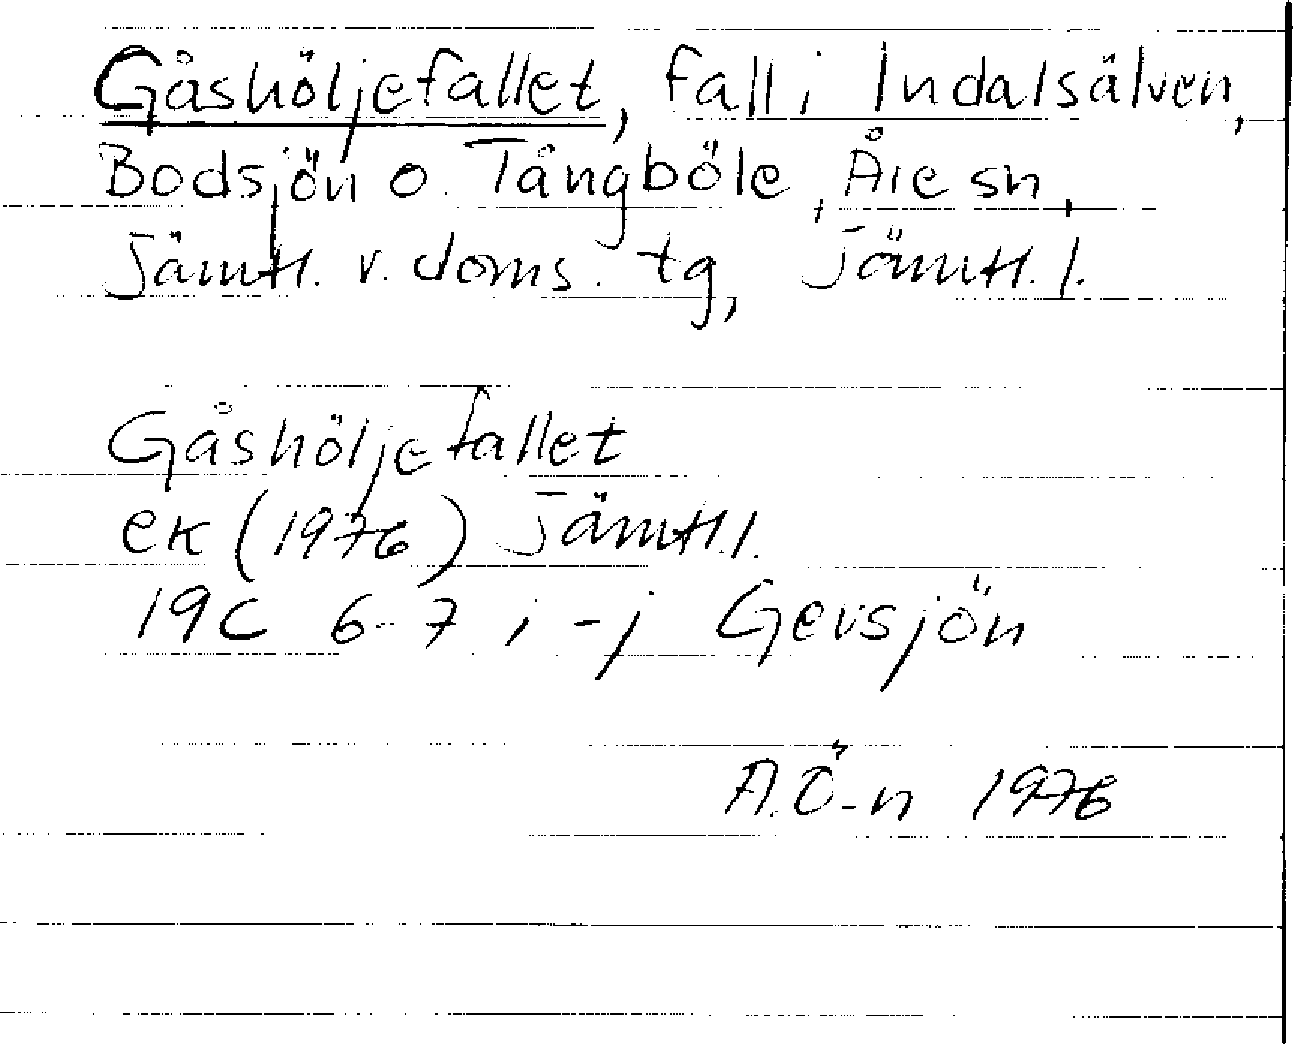 Gåshöljefallet, fall i Indalsälven,
Bodsjön o. Tångböle, Åre sn,
Jämtl. v. doms. tg, Jämtl. l.
Gåshöljefallet
ek (1976) Jämtl. l.
19C 6-7 i-j Gevsjön
A. Ö-n 1976